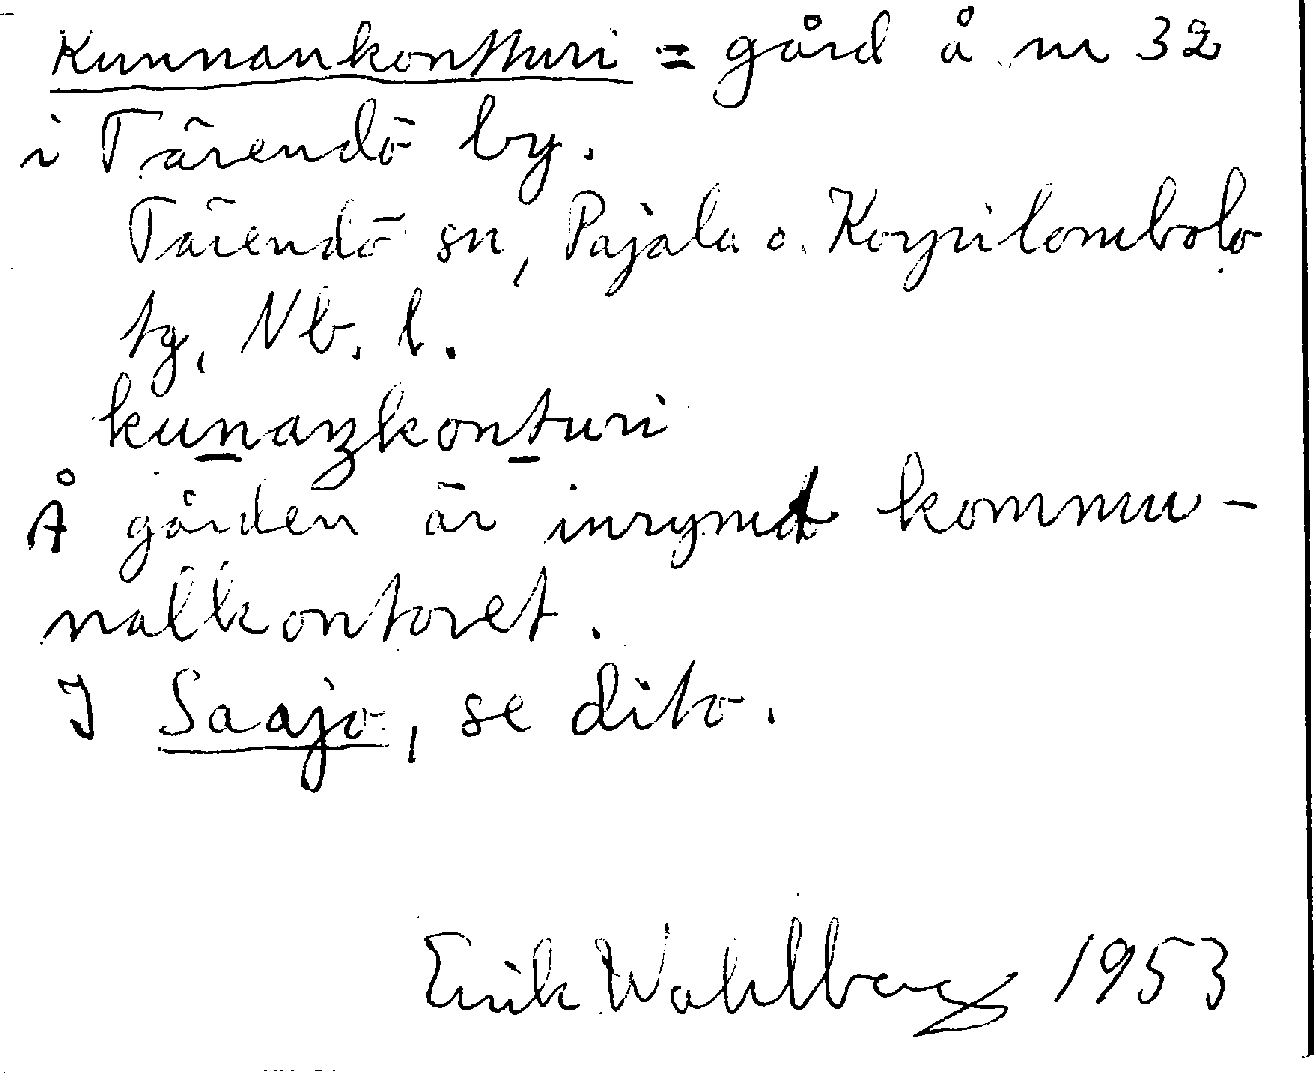 Kunnankontturi = gård å nr 32
i Tärendö by.
Tärendö sn, Pajala o. Korpilombolo
tg, Nb. l.
kuṉaŋkonṯuri
Å gården är inrymd kommu-
nalkontoret.
I Saajo, se dito.
Erik Wahlberg 1953